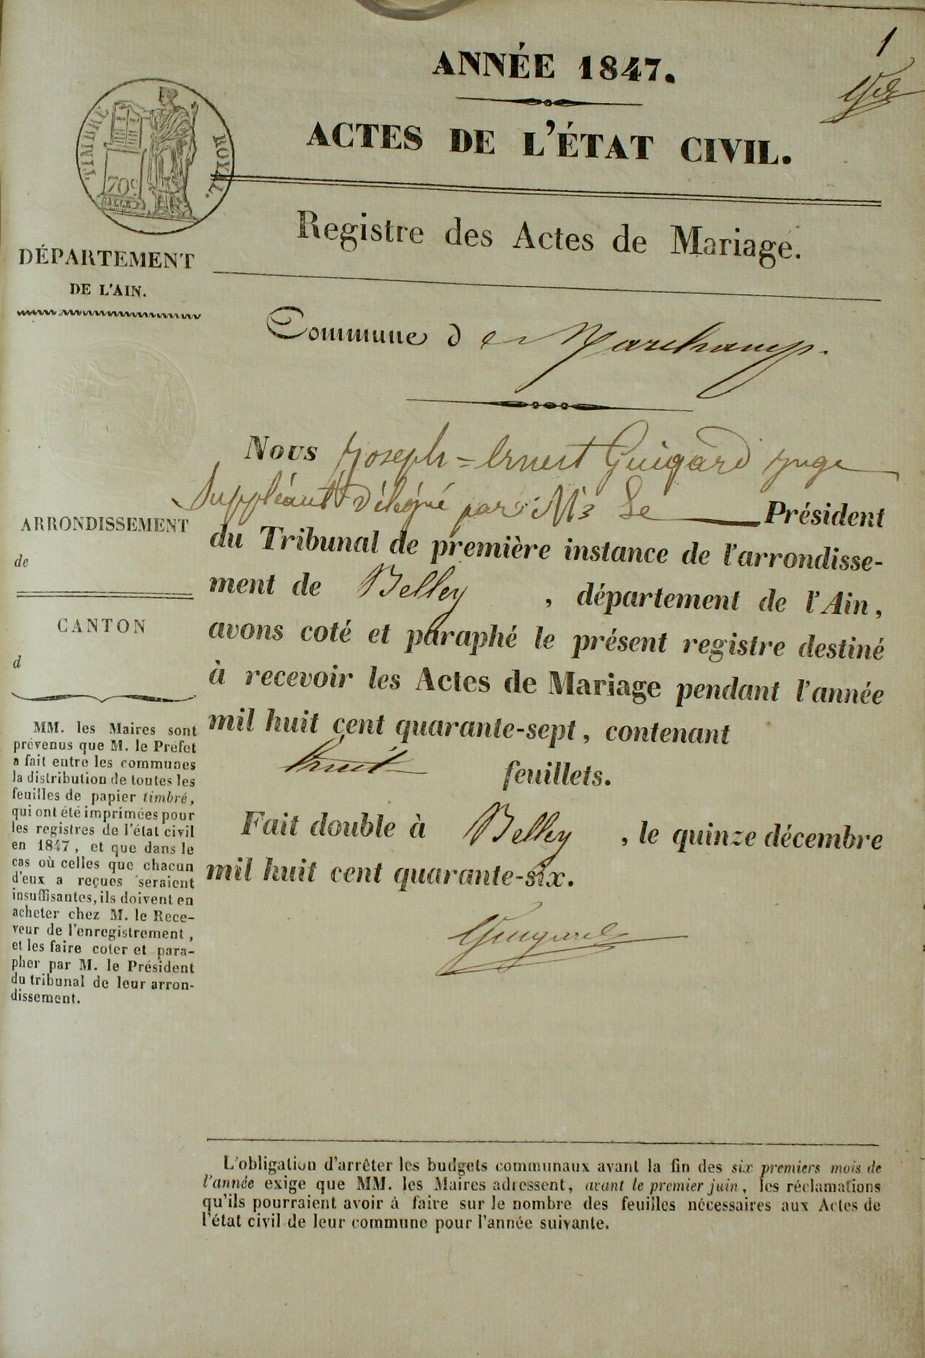 1
ANNÉE 1847.
ACTES DE L'ÉTAT CIVIL.
TIMBRE ROYAL.
70c
Registre des Actes de Mariage.
DÉPARTEMENT
DE L'AIN.
Commune de Marchamp.
Nous Joseph-Ernest Guigard juge
Suppléant Délégué par Mr Le Président
du Tribunal de première instance de l'arrondisse-
ment de Belley, département de l'Ain,
avons coté et paraphé le présent registre destiné
à recevoir les Actes de Mariage pendant l'année
mil huit cent quarante-sept, contenant
huit feuillets.
Fait double à Belley, le quinze décembre
mil huit cent quarante-six.
Guigard
ARRONDISSEMENT
de
CANTON
d
MM. les Maires sont
prévenus que M. le Préfet
a fait entre les communes
la distribution de toutes les
feuilles de papier timbré,
qui ont été imprimées pour
les registres de l'état civil
en 1847, et que dans le
cas où celles que chacun
d'eux a reçues seraient
insuffisantes, ils doivent en
acheter chez M. le Rece-
veur de l'enregistrement,
et les faire coter et para-
pher par M. le Président
du tribunal de leur arron-
dissement.
L'obligation d'arrêter les budgets communaux avant la fin des six premiers mois de
l'année exige que MM. les Maires adressent, avant le premier juin, les réclamations
qu'ils pourraient avoir à faire sur le nombre des feuilles nécessaires aux Actes de
l'état civil de leur commune pour l'année suivante.